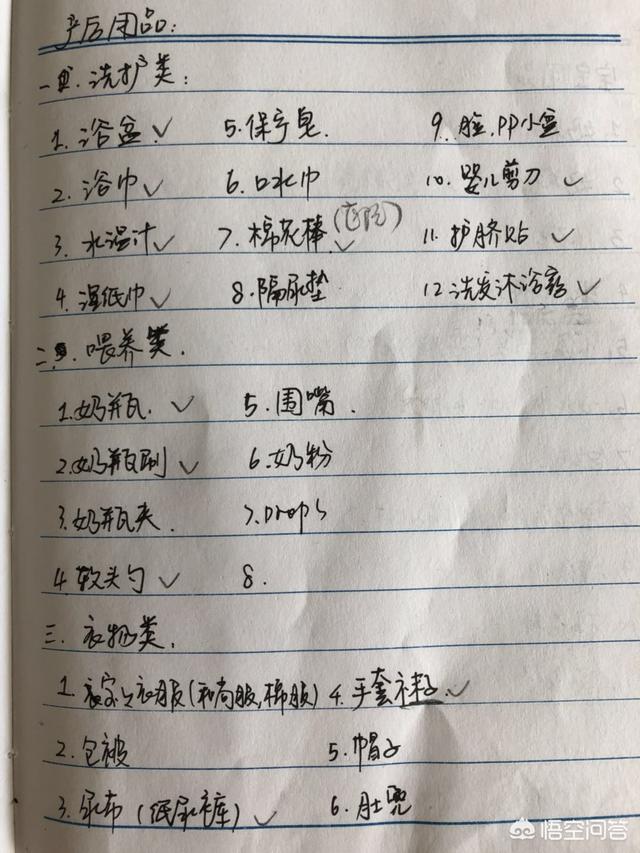 产后用品:
一. 洗护类:
1. 浴盆 ✓ 5. 保宁皂. 9. 脸, PP小盆
2. 浴巾 ✓ 6. 口水巾 10. 婴儿剪刀 ✓
3. 水温计 ✓ 7. 棉花棒 ✓ 11. 护脐贴 ✓
4. 湿纸巾 ✓ 8. 隔尿垫 12. 洗发沐浴 ✓
二. 喂养类.
1. 奶瓶. ✓ 5. 围嘴.
2. 奶瓶刷 ✓ 6. 奶粉
3. 奶瓶夹. 7. Drops
4. 软头勺 ✓ 8.
三. 衣物类.
1. 衣服(和尚服, 棉服) 4. 手套袜子 ✓
2. 包被 5. 帽子
3. 尿布 (纸尿裤) ✓ 6. 肚兜
悟空问答